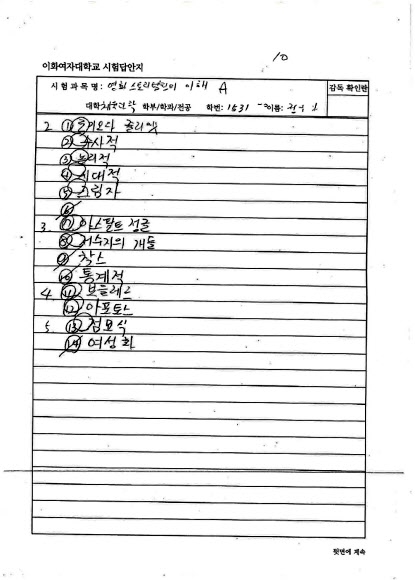 10
이화여자대학교 시험답안지
시 험 과 목 명 : 영화스토리텔링의 이해 A
감독 확인란
대학 학부/학과/전공 학번: 1631 이름:
2 ① 줄리엣
② 수사적
③ 논리적
④ 시대적
⑤ 그림자
⑥
3. ⑦ 아스팔트 정글
⑧ 저수지의 개들
⑨ 찬스
⑩ 통계적
4 ⑪ 보들레르
⑫ 아포토스
5 ⑬ 정모식
⑭ 여성화
뒷면에 계속